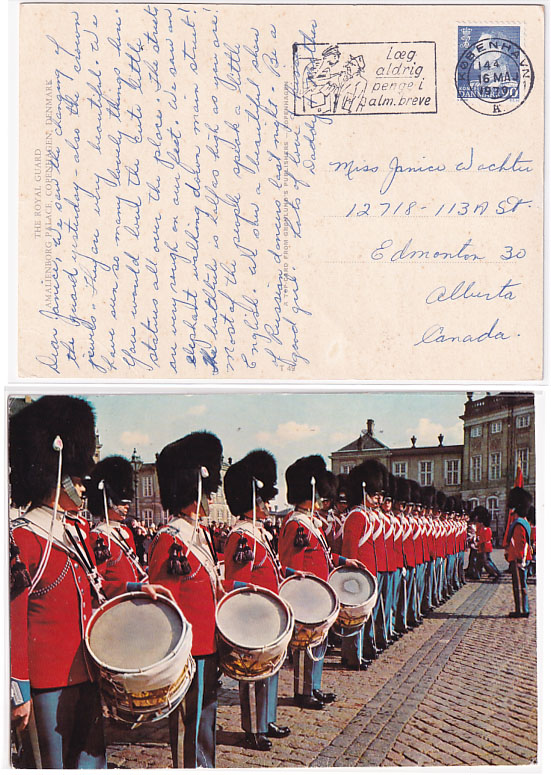 Dear Janice, We saw the changing of
the guard yesterday - also the crown
jewels. They're beautiful. We
have seen so many lovely things here.
You would love the cute little
statues all over the place; the streets
are very rough on our feet. We saw an
elephant walking down main street!
The bathtub is half as high as you are!
Most of the people speak little
English. We saw a beautiful show
of Russian dancers last night. Be a
good girl. Lots of love
Daddy
THE ROYAL GUARD
AMALIENBORG PALACE, COPENHAGEN, DENMARK
A TOP-CARD FROM GRØNLUND'S PUBLISHERS - COPENHAGEN
Læg
aldrig
penge i
alm. breve
KØBENHAVN
144
16 MAJ
1979
K.
DANMARK
Miss Janice Wachter
12718 - 113A St.
Edmonton 30
Alberta
Canada.